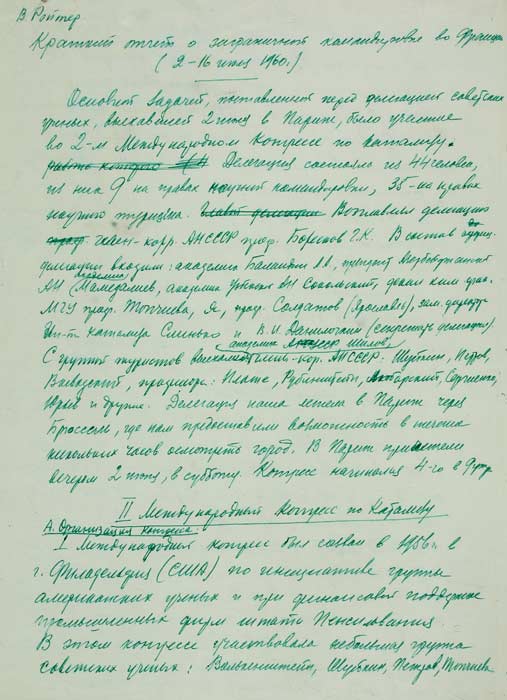 В Ройтер
Краткий отчет о заграничной командировке во Францию
(2-16 июля 1960г.)
Основной задачей, поставленной перед делегацией советских
ученых, выехавшей 2 июля в Париж, было участие
во 2-м Международном Конгрессе по катализу.
Делегация состояла из 44 человек,
из них 9 на правах научной командировки, 35 - на правах
научного туризма. Возглавлял делегацию
член-корр. АН СССР проф. Боресков Г.К. В состав
делегации входили: академик Баландин А.А., президент Азербайджанской
АН Мамедалиев, академик АН Сокольский, декан хим. фак.
МГУ проф. Топчиева, Я, проф. Солдатов (Ярославль), зам. директ.
Ин-т катализа Слинько и В.И. (секретарь делегации).
академик Шилов
С группой туристов член-кор. АН СССР: Шуйкин, Петров,
профессора: Платэ, Рубинштейн, Сергиенко,
Юрьев и другие. Делегация наша летела в Париж через
Брюссель, где нам предоставили возможность в течение
нескольких часов осмотреть город. В Париж прилетели
вечером 2 июля, в субботу. Конгресс начинался 4-го в 9 утра
II Международный Конгресс по Катализу
А. Организация конгресса.
I Международный конгрес был созван в 1956г. в
г. Филадельфия (США) по инициативе группы
американских ученых и при финансовой поддержке
промышленных фирм штата Пенсильвания.
В этом конгресе участвовала небольшая группа
советских ученых: Волькенштейн, Шуйкин, Петров, Топчиева